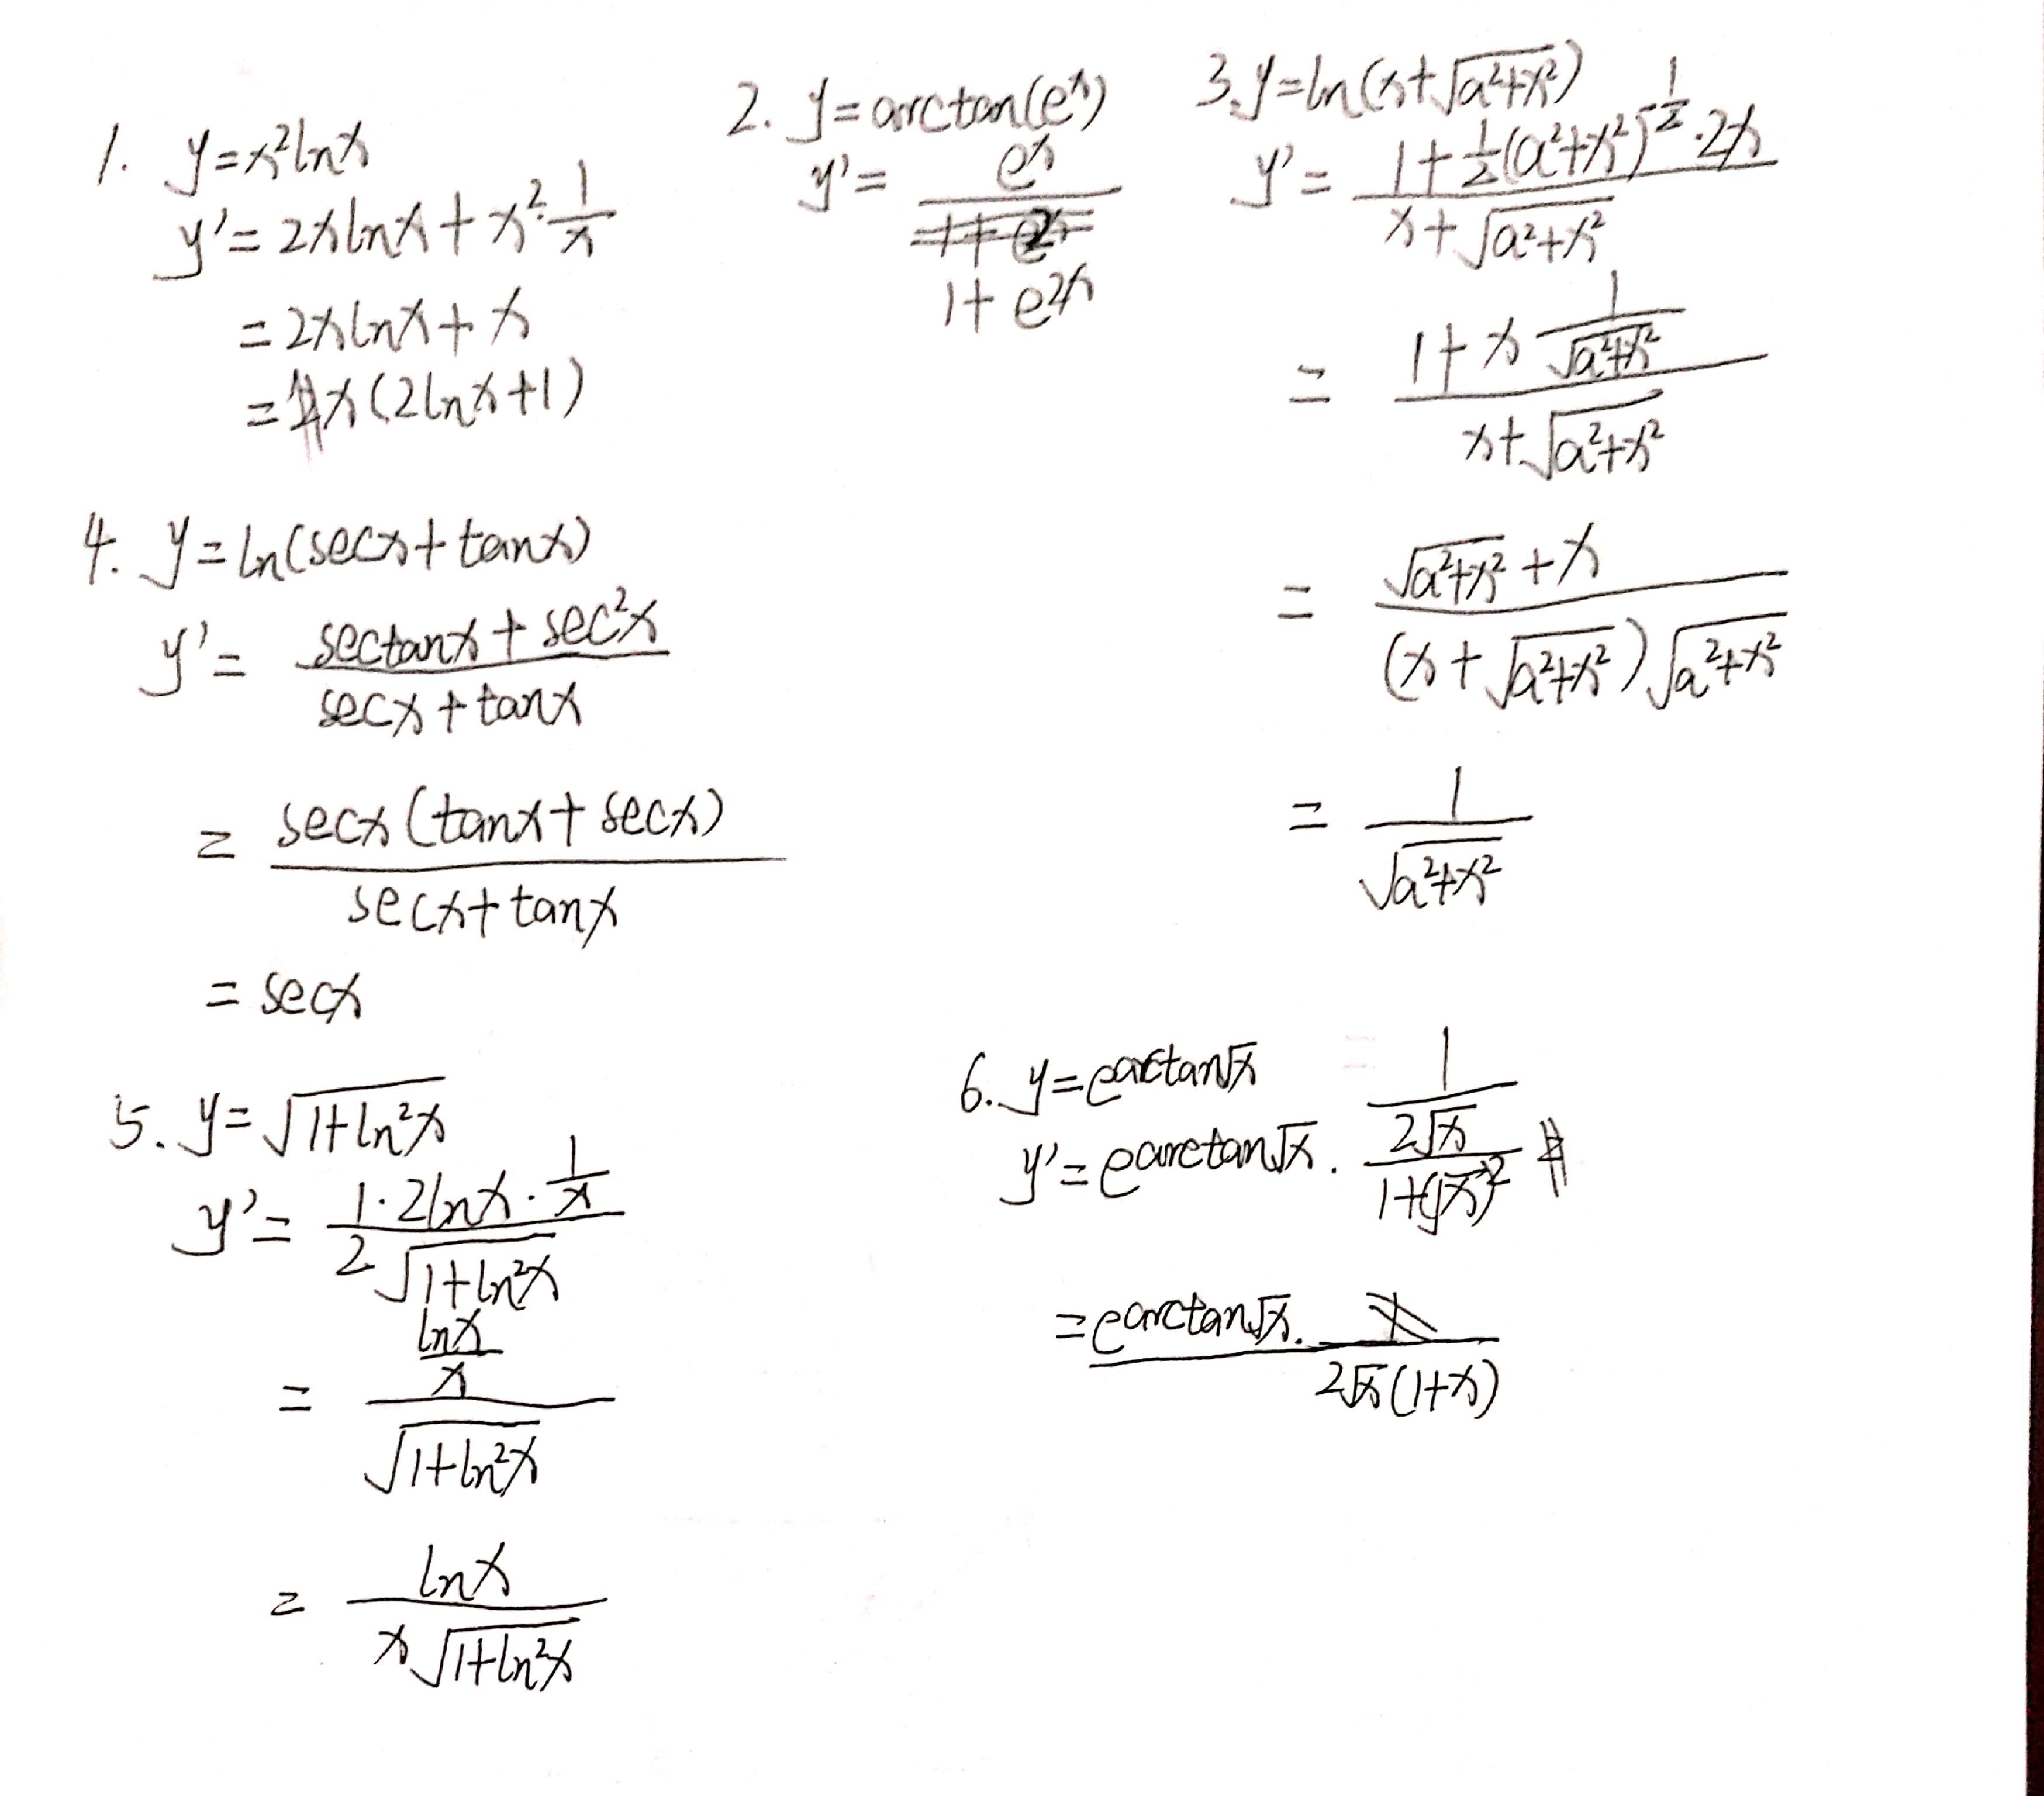 1. y=x²lnx
y'=2xlnx+x²·1/x
=2xlnx+x
=x(2lnx+1)
2. y=arctan(eˣ)
y'=eˣ/(1+e²ˣ)
3. y=ln(x+√(a²+x²))
y'=(1+½(a²+x²)^(-1/2)·2x)/(x+√(a²+x²))
=(1+x 1/√(a²+x²))/(x+√(a²+x²))
=(√(a²+x²)+x)/((x+√(a²+x²))√(a²+x²))
=1/√(a²+x²)
4. y=ln(secx+tanx)
y'=(sectanx+sec²x)/(secx+tanx)
=secx(tanx+secx)/(secx+tanx)
=secx
5. y=√(1+ln²x)
y'=(1·2lnx·1/x)/(2√(1+ln²x))
=(lnx/x)/√(1+ln²x)
=lnx/(x√(1+ln²x))
6. y=e^(arctan√x)
y'=e^(arctan√x)·(1/(2√x))/(1+(√x)²)
=e^(arctan√x)·/(2√x(1+x))